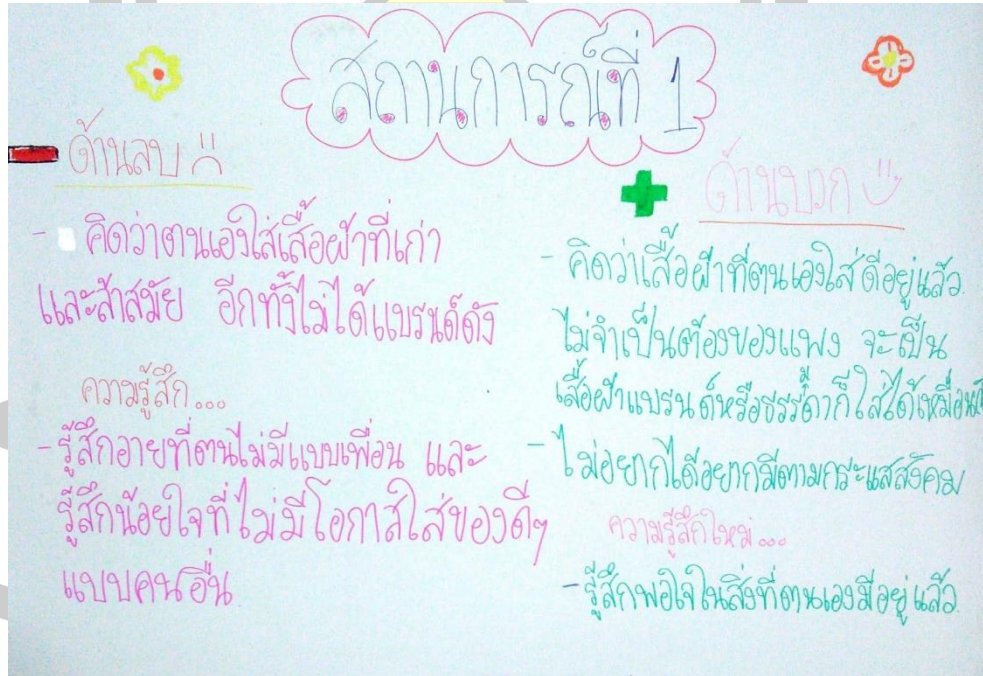 สถานการณ์ที่ 1
ด้านลบ
- คิดว่าตนเองใส่เสื้อผ้าที่เก่า
และล้าสมัย อีกทั้งไม่ได้แบรนด์ดัง
ความรู้สึก...
- รู้สึกอายที่ตนไม่มีแบบเพื่อน และ
รู้สึกน้อยใจที่ไม่มีโอกาสใส่ของดีๆ
แบบคนอื่น
ด้านบวก
- คิดว่าเสื้อผ้าที่ตนเองใส่ดีอยู่แล้ว
ไม่จำเป็นต้องของแพง จะเป็น
เสื้อผ้าแบรนด์หรือธรรมดาก็ใส่ได้เหมือนกัน
- ไม่อยากได้อยากมีตามกระแสสังคม
ความรู้สึกใหม่...
- รู้สึกพอใจในสิ่งที่ตนเองมีอยู่แล้ว